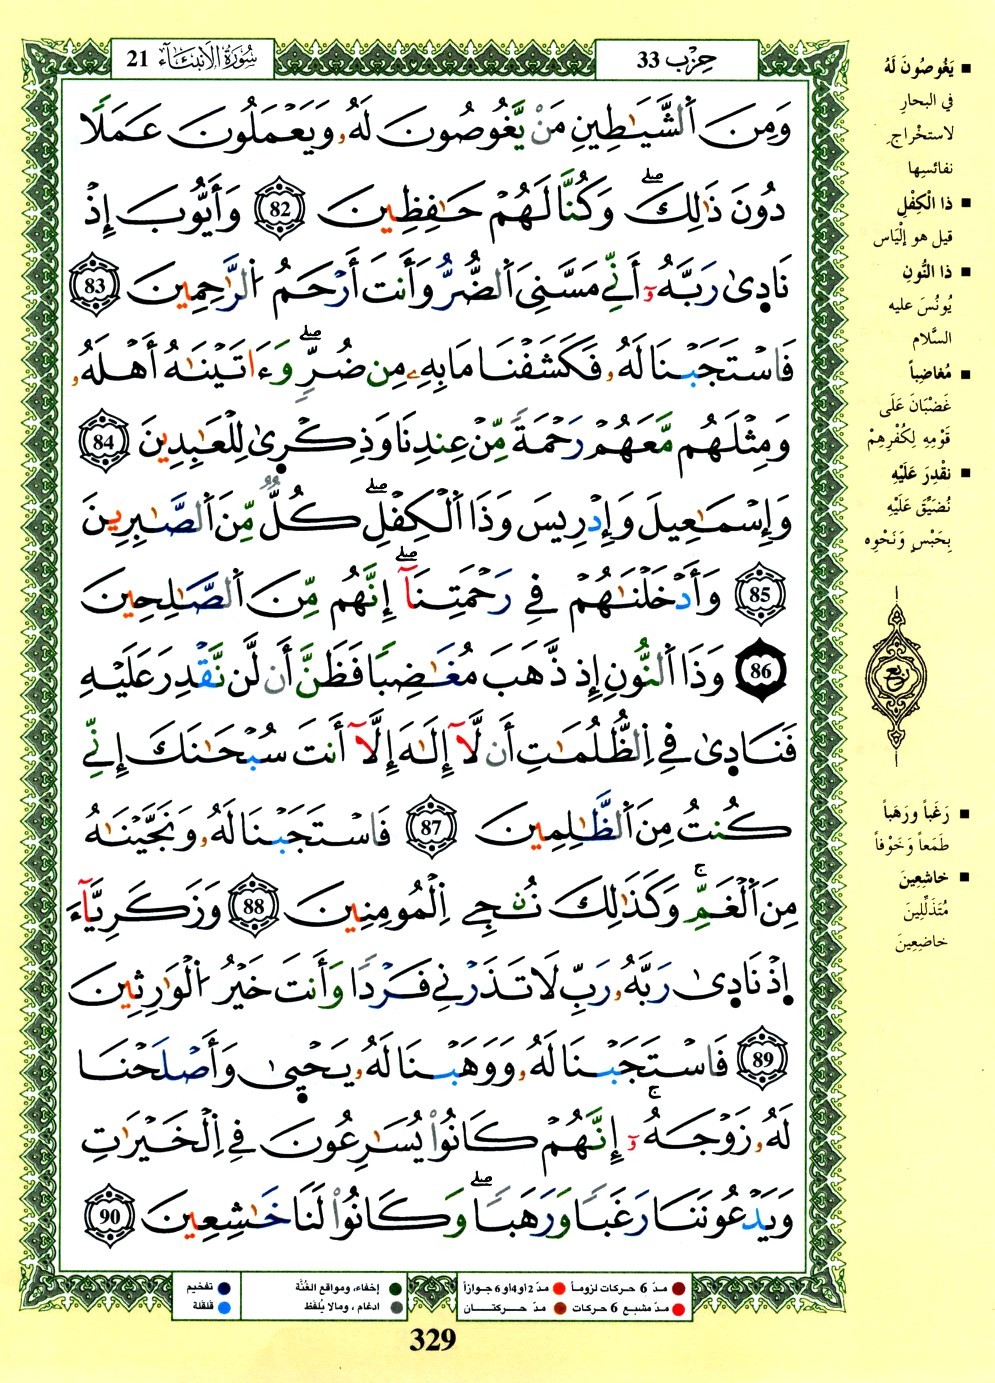 سُورَةُ الْأَنبِيَاءِ 21
حِزْب 33
وَمِنَ اَ۬لشَّيَٰطِينِ مَنْ يَّغُوصُونَ لَهُۥ وَيَعْمَلُونَ عَمَلٗا
دُونَ ذَٰلِكَۖ وَكُنَّا لَهُمْ حَٰفِظِينَ 82 وَأَيُّوبَ إِذْ
نَادٜىٰ رَبَّهُۥٓ أَنِّے مَسَّنِيَ اَ۬لضُّرُّ وَأَنتَ أَرْحَمُ اُ۬لرَّٰحِمِينَ 83
فَاسْتَجَبْنَا لَهُۥ فَكَشَفْنَا مَا بِهِۦ مِن ضُرّٖۖ وَءَاتَيْنَٰهُ أَهْلَهُۥ
وَمِثْلَهُم مَّعَهُمْ رَحْمَةٗ مِّنْ عِندِنَا وَذِكْرٜىٰ لِلْعَٰبِدِينَ 84
وَإِسْمَٰعِيلَ وَإِدْرِيسَ وَذَا اَ۬لْكِفْلِۖ كُلّٞ مِّنَ اَ۬لصَّٰبِرِينَ
85 وَأَدْخَلْنَٰهُمْ فِے رَحْمَتِنَآۖ إِنَّهُم مِّنَ اَ۬لصَّٰلِحِينَ
86 وَذَا اَ۬لنُّونِ إِذ ذَّهَبَ مُغَٰضِبٗا فَظَنَّ أَن لَّن نَّقْدِرَ عَلَيْهِ
فَنَادٜىٰ فِے اِ۬لظُّلُمَٰتِ أَن لَّآ إِلَٰهَ إِلَّآ أَنتَ سُبْحَٰنَكَ إِنِّے
كُنتُ مِنَ اَ۬لظَّٰلِمِينَ 87 فَاسْتَجَبْنَا لَهُۥ وَنَجَّيْنَٰهُ
مِنَ اَ۬لْغَمِّۚ وَكَذَٰلِكَ نُۨجِے اِ۬لْمُومِنِينَ 88 وَزَكَرِيَّآءَ
اِ۪ذْ نَادٜىٰ رَبَّهُۥ رَبِّ لَا تَذَرْنِے فَرْدٗا وَأَنتَ خَيْرُ اُ۬لْوَٰرِثِينَ
89 فَاسْتَجَبْنَا لَهُۥ وَوَهَبْنَا لَهُۥ يَحْيٜىٰ وَأَصْلَحْنَا
لَهُۥ زَوْجَهُۥٓۚ إِنَّهُمْ كَانُواْ يُسَٰرِعُونَ فِے اِ۬لْخَيْرَٰتِ
وَيَدْعُونَنَا رَغَبٗا وَرَهَبٗاۖ وَكَانُواْ لَنَا خَٰشِعِينَ 90
■ يَغُوصُونَ لَهُ
في البحارِ
لاستخْراجِ
نفائسِها
■ ذا الْكِفْلِ
قيل هو إلْيَاس
■ ذا النُّونِ
يُونُسَ عليه
السَّلام
■ مُغاضِباً
غَضْبَانَ عَلَى
قَوْمِهِ لِكُفْرِهِمْ
■ نقْدِرَ عَلَيْهِ
نُضَيِّقَ عَلَيْهِ
بِحَبْسٍ وَنَحْوِه
ربع
■ رَغَباً ورَهَباً
طَمَعاً وَخَوْفاً
■ خاشِعِينَ
مُتَذَلِّلِينَ
خاضِعِينَ
مدّ 6 حركات لزوماً
مدّ 2 أو 4 أو 6 جوازاً
إخفاء، ومواقع الغُنَّة
تفخيم
مدّ مشبع 6 حركات
مدّ حركتان
ادغام، ومالا يُلفَظ
قلقلة
329